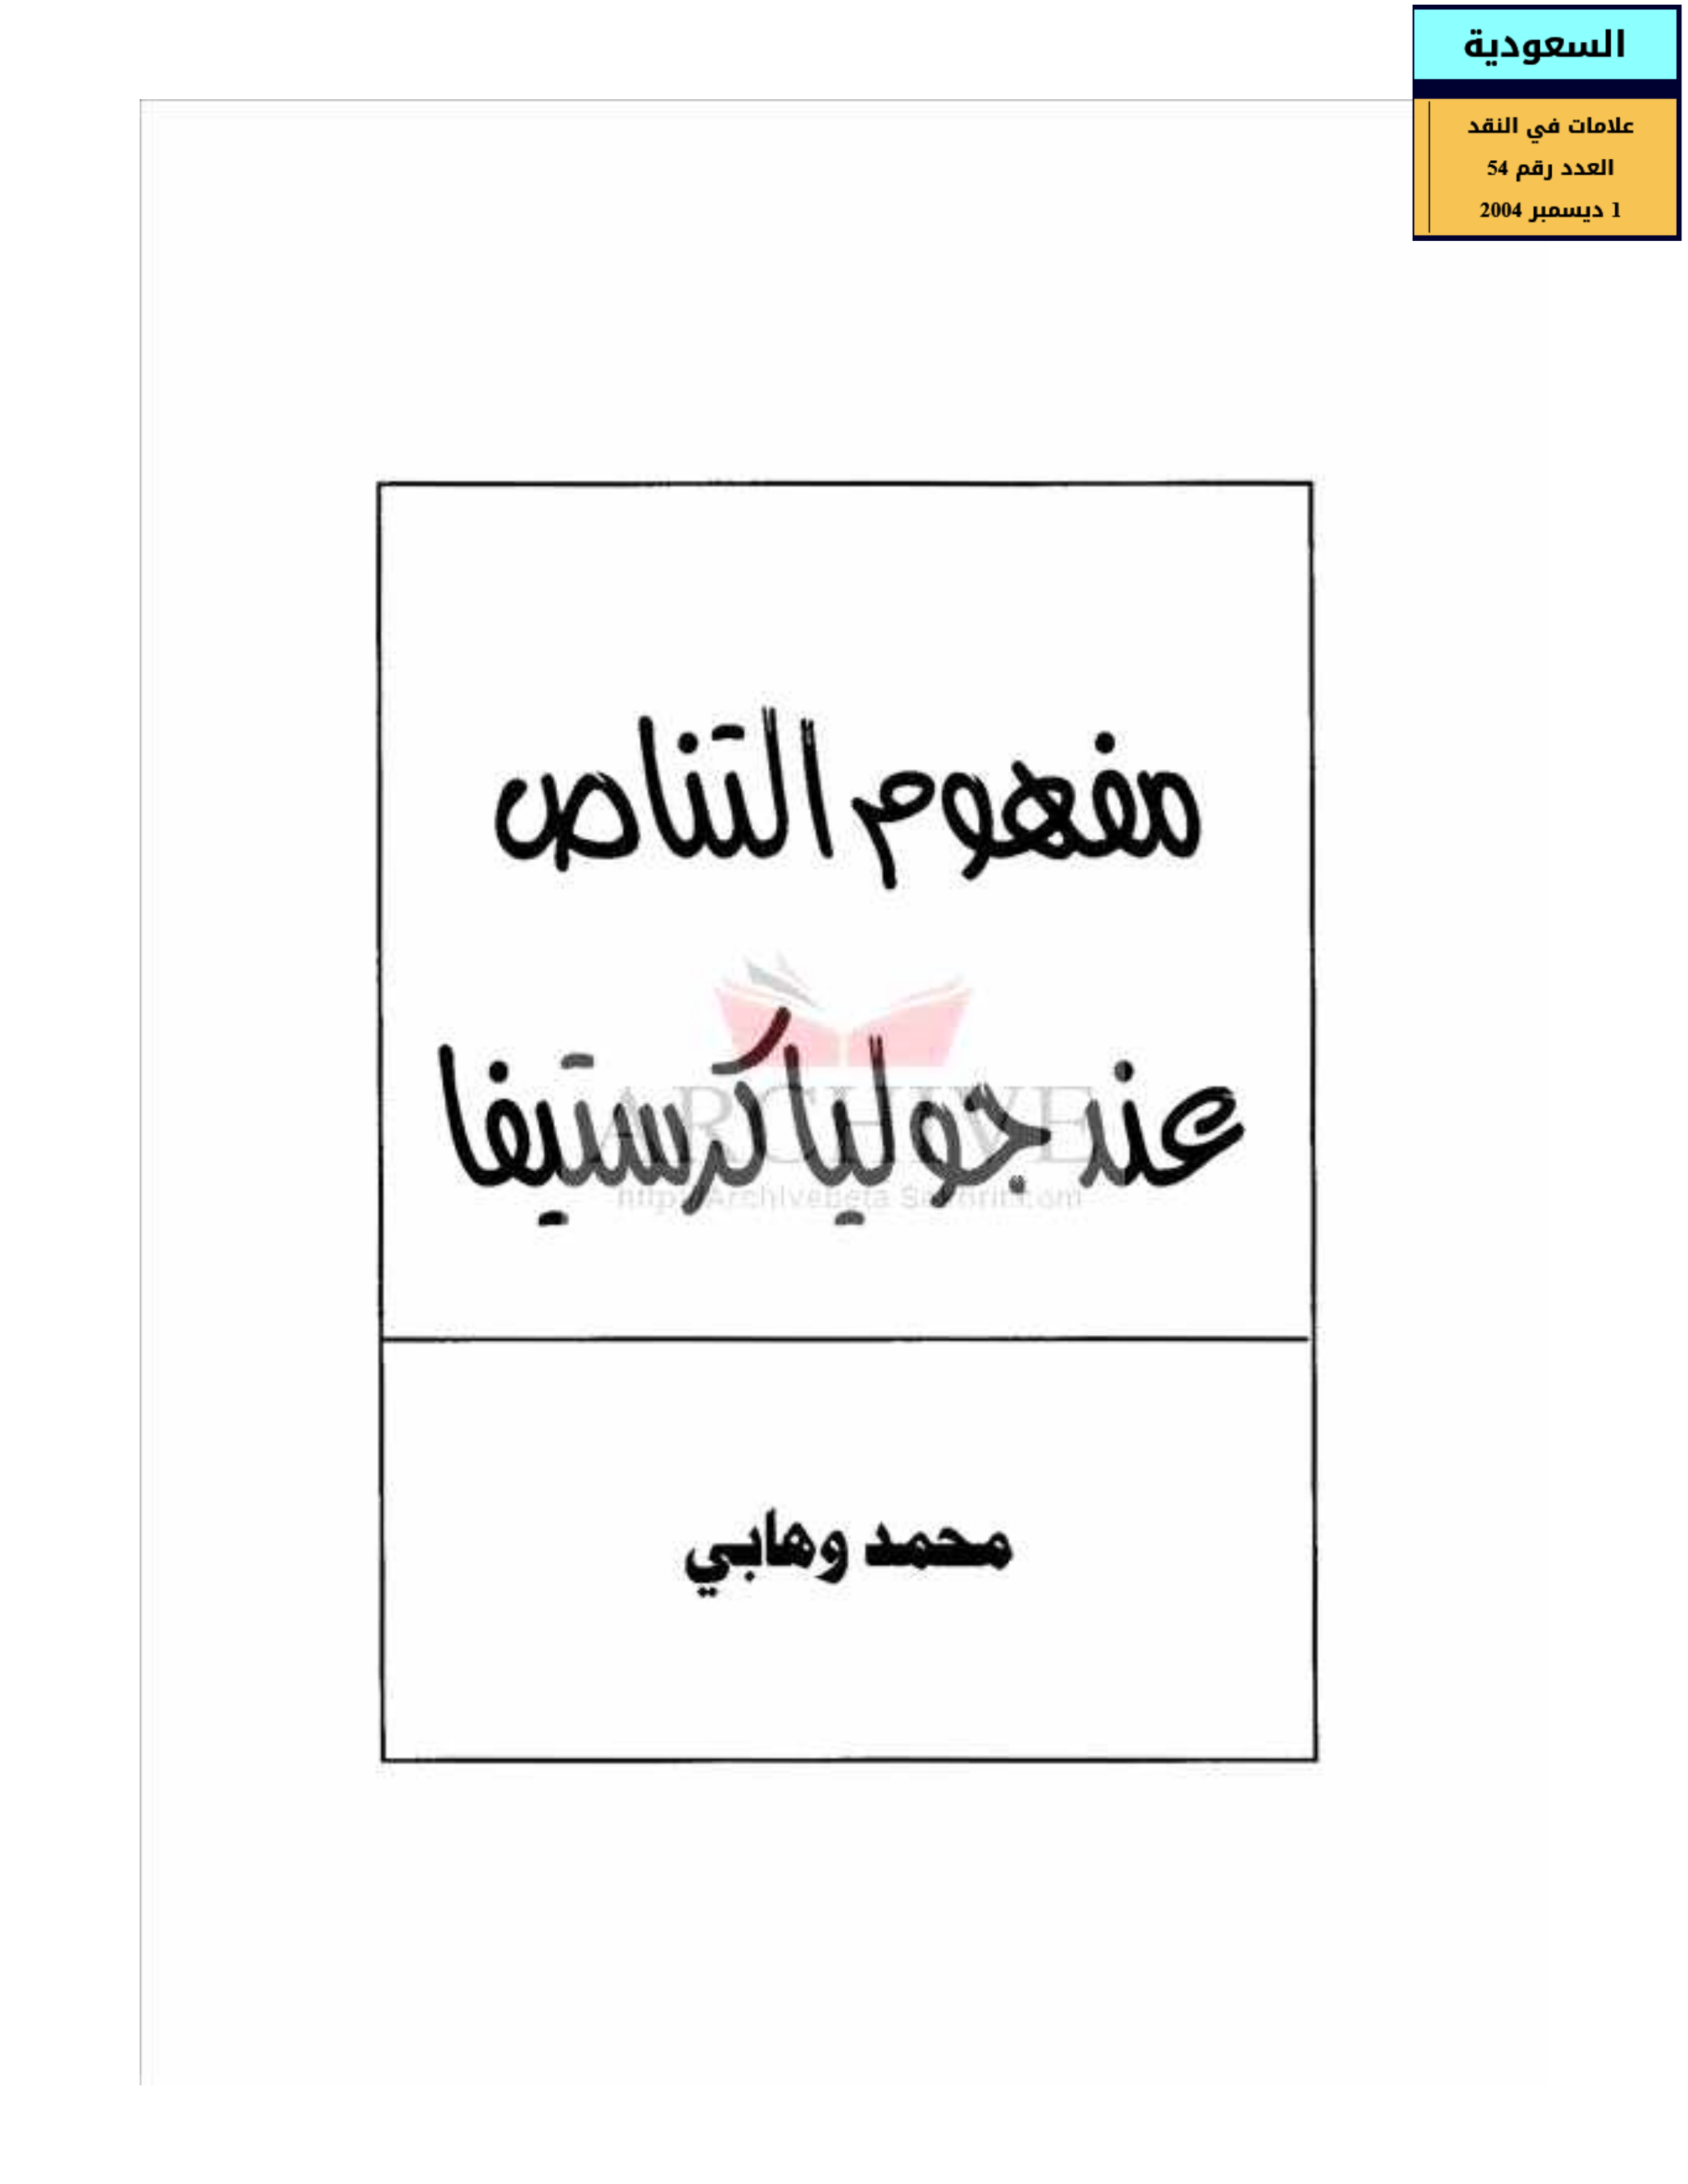 السعودية
علامات في النقد
العدد رقم 54
1 ديسمبر 2004
مفهوم التناص
عند جوليا كرستيفا
ARCHIVE
محمد وهابي